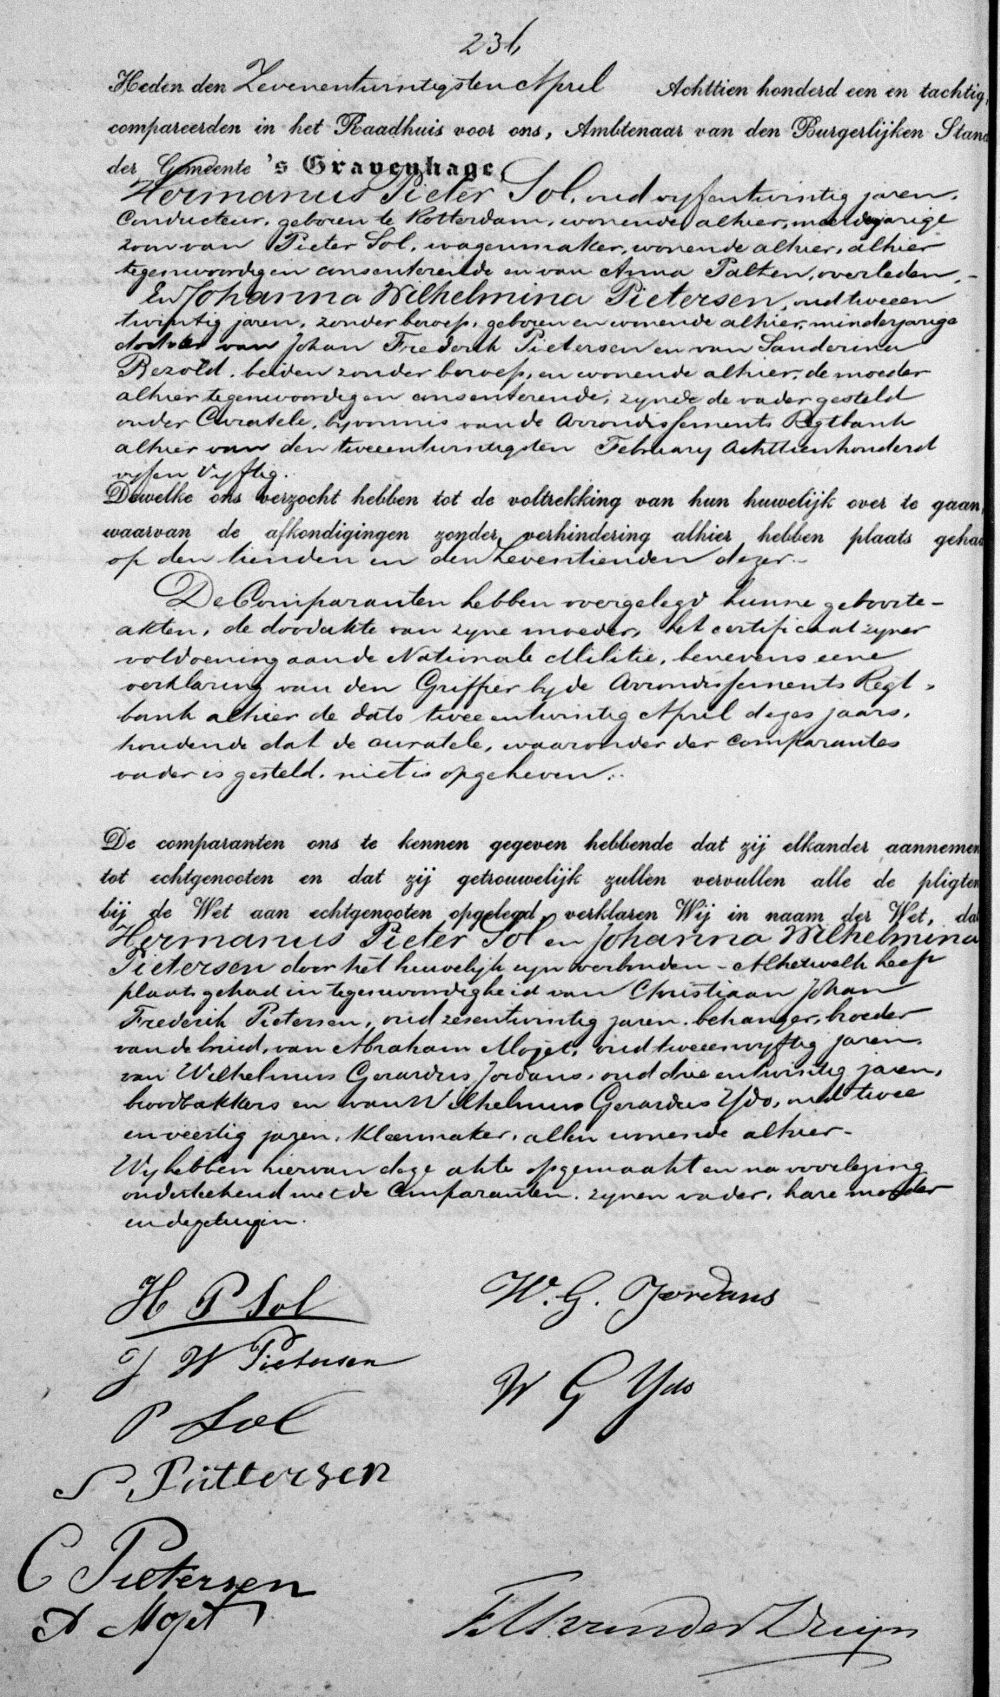 236
Heden den Zevenentwintigsten April Achttien honderd een en tachtig,
compareerden in het Raadhuis voor ons, Ambtenaar van den Burgerlijken Stand
der Gemeente 's Gravenhage,
Hermanus Pieter Sol, oud vyfentwintig jaren,
Conducteur, geboren te Rotterdam, wonende alhier, meerderjarige
zoon van Pieter Sol, wagenmaker, wonende alhier, alhier
tegenwoordig en consenteerende en van Anna Palten, overleden,
En Johanna Wilhelmina Pietersen, oud tweeen
twintig jaren, zonder beroep, geboren en wonende alhier, minderjarige
dochter van Johan Frederik Pietersen en van Sanderina
Bezold, beiden zonder beroep, en wonende alhier, de moeder
alhier tegenwoordig en consenteerende, zynde de vader gesteld
onder Curatele, by vonnis van de Arrondissements Regtbank
alhier van den tweeentwintigsten February Achttienhonderd
vyf en Vyftig.
Dewelke ons verzocht hebben tot de voltrekking van hun huwelijk over te gaan,
waarvan de afkondigingen zonder verhindering alhier hebben plaats gehad
op den tienden en den Zeventienden dezer.
De Comparanten hebben overgelegd hunne geboorte-
akten, de doodakte van zyne moeder, het certificaat zyner
voldoening aan de Nationale Militie, benevens eene
verklaring van den Griffier by de Arrondissements Regt-
bank alhier de dato twee entwintig April dezes jaars,
houdende dat de curatele, waaronder der comparantes
vader is gesteld, niet is opgeheven.
De comparanten ons te kennen gegeven hebbende dat zij elkander aannemen
tot echtgenooten en dat zij getrouwelijk zullen vervullen alle de pligten
bij de Wet aan echtgenooten opgelegd, verklaren Wij in naam der Wet, da
Hermanus Pieter Sol en Johanna Wilhelmina
Pietersen door het huwelijk zyn verbonden - Alhetwelk heeft
plaats gehad in tegenwoordigheid van Christiaan Johan
Frederik Pietersen, oud zesentwintig jaren, behanger, broeder
van de bruid, van Abraham Mojet, oud tweeenvyftig jaren,
van Wilhelmus Gerardus Jordans, oud drie entwintig jaren,
broodbakkers en van Wilhelmus Gerardus Ydo, oud twee
en veertig jaren, kleermaker, allen wonende alhier.
Wy hebben hiervan deze akte opgemaakt en na voorlezing
onderteekend met de Comparanten, zynen vader, hare moeder
en de getuigen.
H P Sol
W. G. Jordans
J W Pietersen
W G Ydo
P Sol
S Piittersen
C Pietersen
A Mojet
van der Kruijn